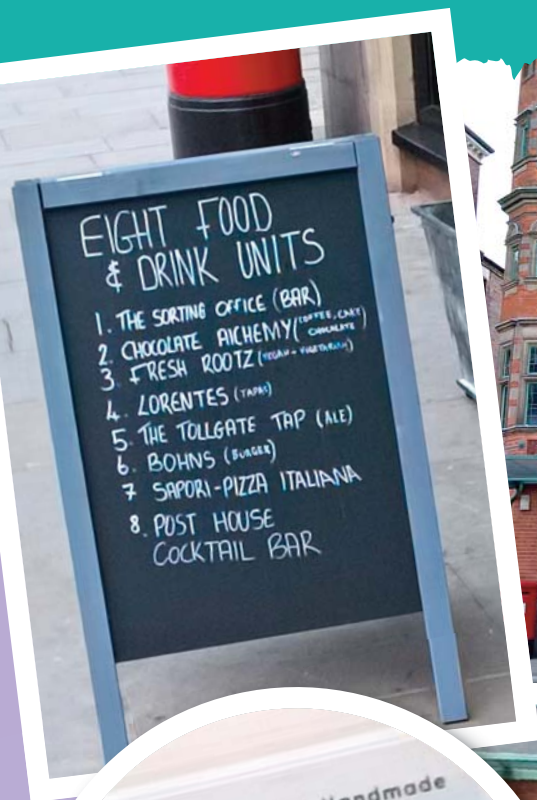 EIGHT FOOD
& DRINK UNITS
1. THE SORTING OFFICE (BAR)
2. CHOCOLATE AlCHEMY (COFFEE, CAKE
CHOCOLATE)
3. FRESH ROOTZ (VEGAN + VEGETARIAN)
4. LORENTES (TAPAS)
5. THE TOLLGATE TAP (ALE)
6. BOHNS (BURGER)
7 SAPORI-PIZZA ITALIANA
8. POST HOUSE
COCKTAIL BAR
Handmade